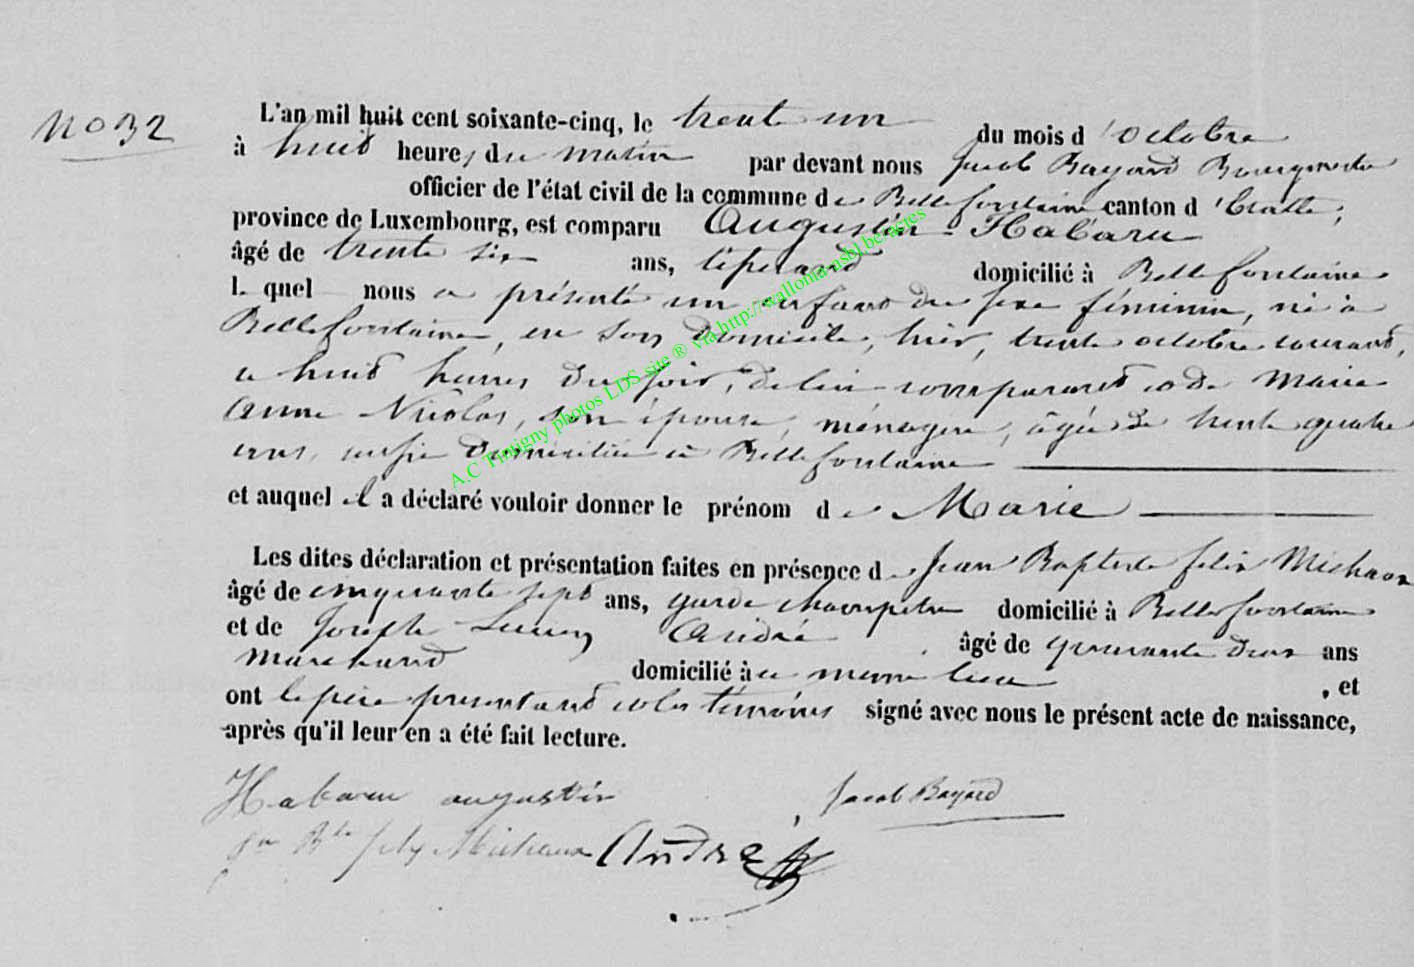 No 32
L'an mil huit cent soixante-cinq, le trente un du mois d'octobre
à huit heures du matin par devant nous Jacob Bayard Bourgmestre
officier de l'état civil de la commune de Bellefontaine canton d'Etalle,
province de Luxembourg, est comparu Augustin Habaru
âgé de trente six ans, domicilié à Bellefontaine
lequel nous a présenté un enfant du sexe féminin, né à
Bellefontaine, en son domicile, hier, trente octobre courant,
à huit heures du soir, de lui comparant et de Marie
Anne Nicolas, son épouse, ménagère, âgée de trente quatre
ans, aussi domiciliée à Bellefontaine
et auquel il a déclaré vouloir donner le prénom de Marie
Les dites déclaration et présentation faites en présence de Jean Baptiste felix Michaux
âgé de cinquante sept ans, garde champetre domicilié à Bellefontaine
et de Joseph André âgé de quarante deux ans
Marchand domicilié à au meme lieu, et
ont le père presentant et les témoins signé avec nous le présent acte de naissance,
après qu'il leur en a été fait lecture.
Habaru augustin Jacob Bayard
Jn Bte felix Michaux André
A.C Tintigny photos LDS site ® via http://wallonia-asbl.be/actes